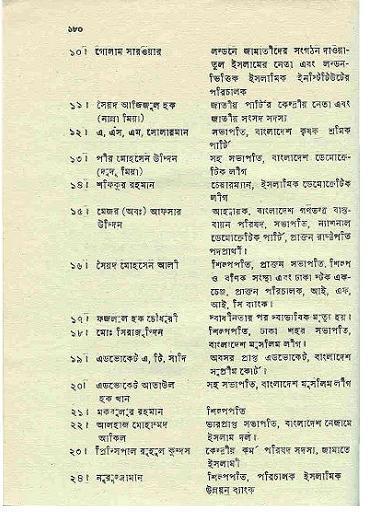 ১৮০
১০। গোলাম সারওয়ার লন্ডনে জামাতীদের সংগঠন দাওয়া-
তুল ইসলামের নেতা এবং লন্ডন-
ভিত্তিক ইসলামিক ইনস্টিটিউটের
পরিচালক
১১। সৈয়দ আজিজুল হক জাতীয় পার্টির কেন্দ্রীয় নেতা এবং
(নান্না মিয়া) জাতীয় সংসদ সদস্য
১২। এ, এস, এম, সোলায়মান সভাপতি, বাংলাদেশ কৃষক শ্রমিক
পার্টি
১৩। পীর মোহসেন উদ্দিন সহ সভাপতি, বাংলাদেশ ডেমোক্রে-
(দুদু মিয়া) টিক লীগ
১৪। শফিকুর রহমান চেয়ারম্যান, ইসলামিক ডেমোক্রেটিক
লীগ
১৫। মেজর (অবঃ) আফসার আহ্বায়ক, বাংলাদেশ গণতন্ত্র বাস্ত-
উদ্দিন বায়ন পরিষদ, সভাপতি, ন্যাশনাল
ডেমোক্রেটিক পার্টি, প্রাক্তন রাষ্ট্রপতি
পদপ্রার্থী।
১৬। সৈয়দ মোহসেন আলী শিল্পপতি, প্রাক্তন সভাপতি, শিল্প
ও বণিক সংস্থা এবং ঢাকা স্টক এক্স-
চেঞ্জ, প্রাক্তন পরিচালক, আই, এফ,
আই, সি ব্যাংক।
১৭। ফজলুল হক চৌধুরী স্বাধীনতার পর স্বাভাবিক মৃত্যু হয়।
১৮। মোঃ সিরাজুদ্দিন শিল্পপতি, ঢাকা শহর সভাপতি,
বাংলাদেশ মুসলিম লীগ।
১৯। এডভোকেট এ, টি, সাদি অবসর প্রাপ্ত এডভোকেট, বাংলাদেশ
সুপ্রীম কোর্ট।
২০। এডভোকেট আতাউল সহ সভাপতি, বাংলাদেশ মুসলিম লীগ
হক খান
২১। মকবুলুর রহমান শিল্পপতি
২২। আলহাজ মোহাম্মদ ভারপ্রাপ্ত সভাপতি, বাংলাদেশ নেজামে
আকিল ইসলাম দল।
২৩। প্রিন্সিপাল রুহুল কুদ্দুস কেন্দ্রীয় কর্ম পরিষদ সদস্য, জামাতে
ইসলামী
২৪। নুরুজ্জামান শিল্পপতি, পরিচালক ইসলামিক
উন্নয়ন ব্যাংক